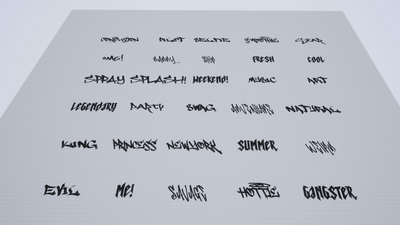 PILOT SELFIE
OMG! FRESH COOL
SPRAY SPLASH!! WEEKEND! MUSIC ART
LEGENDARY PARTY SWAG NATURAL
KING PRINCESS NEWYORK SUMMER
EVIL ME! SAVAGE HOTTIE GANGSTER